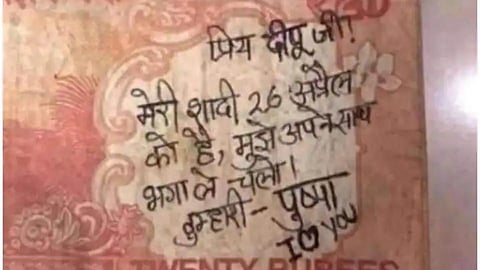 प्रिय दीपू जी!
मेरी शादी 26 अप्रैल
को है, मुझे अपने साथ
भगा ले चलो।
तुम्हारी - पुष्पा
I ♡ YOU
TWENTY RUPEES